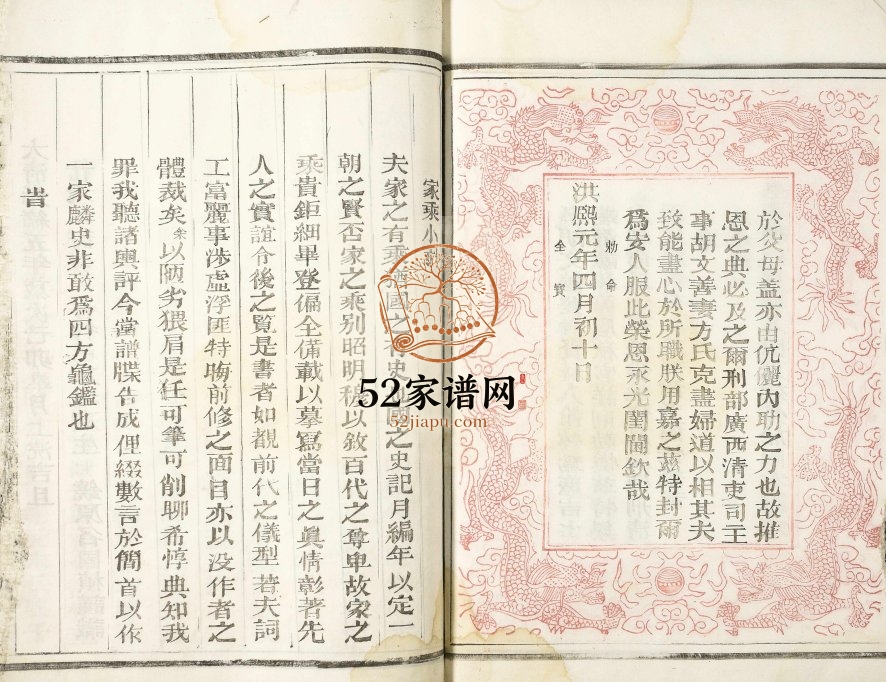 於父母蓋亦由伉儷內助之力也故推
恩之典必及之爾刑部廣西清吏司主
事胡文善妻方氏克盡婦道以相其夫
致能盡心於所職朕用嘉之茲特封爾
爲安人服此榮恩永光閨閫欽哉
洪熙元年四月初十日
勑命
全寳
家乘小
夫家之有乘猶國之有史國之史記月編年以定一
朝之賢否家之乘别昭明穆以敘百代之尊卑故家之
乘貴鉅細畢登偏全俻載以摹寫當日之眞情彰著先
人之實誼令後之覽是書者如覩前代之儀型若夫詞
工富麗事涉虛浮匪特晦前修之面目亦以没作者之
體裁矣余以陋劣猥肩是任可筆可削聊希惇典知我
罪我聽諸輿評今當譜牒告成俚綴數言於簡首以作
一家麟史非敢爲四方龜鑑也
旹
52家谱网
52jiapu.com